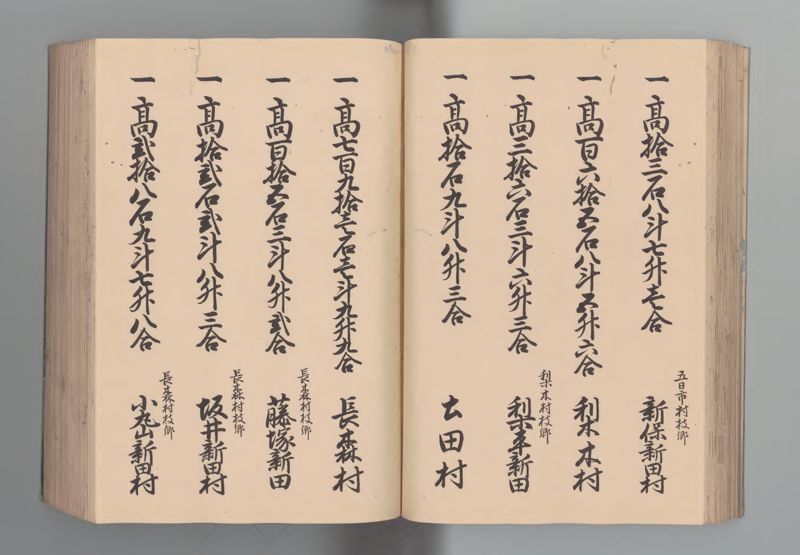 一髙拾三石八斗七升壱合
五日市村枝郷
新保新田村
一髙百六拾五石八斗五升六合
梨木村
一髙三拾六石三斗六升三合
梨木村枝郷
梨平新田
一髙拾石九斗八升三合
土田村
一髙七百九拾壱石壱斗九升九合
長森村
一髙百拾五石三斗八升弐合
長森村枝郷
藤塚新田
一髙拾弐石弐斗八升三合
長森村枝郷
坂井新田村
一髙弐拾八石九斗七升八合
長森村枝郷
小丸山新田村